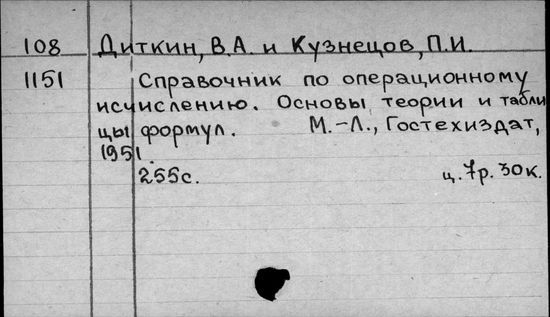 108 Диткин, В.А. и Кузнецов, П.И.
1151 Справочник по операционному
исчислению. Основы теории и табли
цы формул. М.-Л., Гостехиздат,
1951.
255с. ц. 7р. 30к.